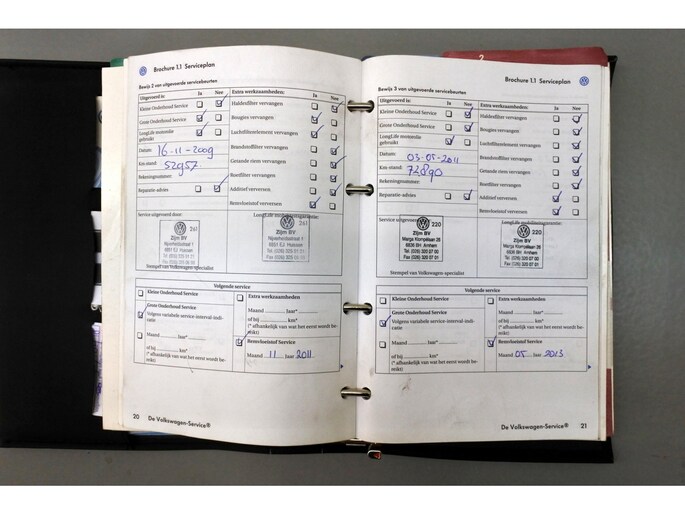 Brochure 1.1 Serviceplan
Bewijs 2 van uitgevoerde servicebeurten
Uitgevoerd is: Ja Nee
Kleine Onderhoud Service
Grote Onderhoud Service
LongLife motorolie
gebruikt
Datum: 16-11-2009
Km-stand: 52957
Rekeningnummer:
Reparatie-advies
Extra werkzaamheden: Ja Nee
Pollenfilter vervangen
Bougies vervangen
Luchtfilterelement vervangen
Brandstoffilter vervangen
Getande riem vervangen
Roetfilter vervangen
Additief verversen
Remvloeistof verversen
Service uitgevoerd door:
LongLife mobiliteitsgarantie:
261
Zijm BV
Nijverheidsstraat 1
6851 EJ Huissen
261
Zijm BV
Nijverheidsstraat 1
6851 EJ Huissen
Stempel van Volkswagen-specialist
Volgende service
Kleine Onderhoud Service
Grote Onderhoud Service
Volgens variabele service-interval-indi-
catie
Maand ..... Jaar*
of bij ..... km*
(* afhankelijk van wat het eerst wordt be-
reikt)
Extra werkzaamheden
Maand ..... Jaar*
of bij ..... km*
(* afhankelijk van wat het eerst wordt be-
reikt)
Remvloeistof Service
Maand 11 Jaar 2011
20 De Volkswagen-Service®
2
Brochure 1.1 Serviceplan
Bewijs 3 van uitgevoerde servicebeurten
Uitgevoerd is: Ja Nee
Kleine Onderhoud Service
Grote Onderhoud Service
LongLife motorolie
gebruikt
Datum: 03-05-2011
Km-stand: 72890
Rekeningnummer:
Reparatie-advies
Extra werkzaamheden: Ja Nee
Pollenfilter vervangen
Bougies vervangen
Luchtfilterelement vervangen
Brandstoffilter vervangen
Getande riem vervangen
Roetfilter vervangen
Additief verversen
Remvloeistof verversen
Service uitgevoerd door:
LongLife mobiliteitsgarantie:
220
Zijm BV
Marga Klompelaan 26
6836 BH Arnhem
Tel. (026) 320 07 00
Fax (026) 320 07 01
220
Zijm BV
Marga Klompelaan 26
6836 BH Arnhem
Tel. (026) 320 07 00
Fax (026) 320 07 01
Stempel van Volkswagen-specialist
Volgende service
Kleine Onderhoud Service
Grote Onderhoud Service
Volgens variabele service-interval-indi-
catie
Maand ..... Jaar*
of bij ..... km*
(* afhankelijk van wat het eerst wordt be-
reikt)
Extra werkzaamheden
Maand ..... Jaar*
of bij ..... km*
(* afhankelijk van wat het eerst wordt be-
reikt)
Remvloeistof Service
Maand 05 Jaar 2013
De Volkswagen-Service® 21